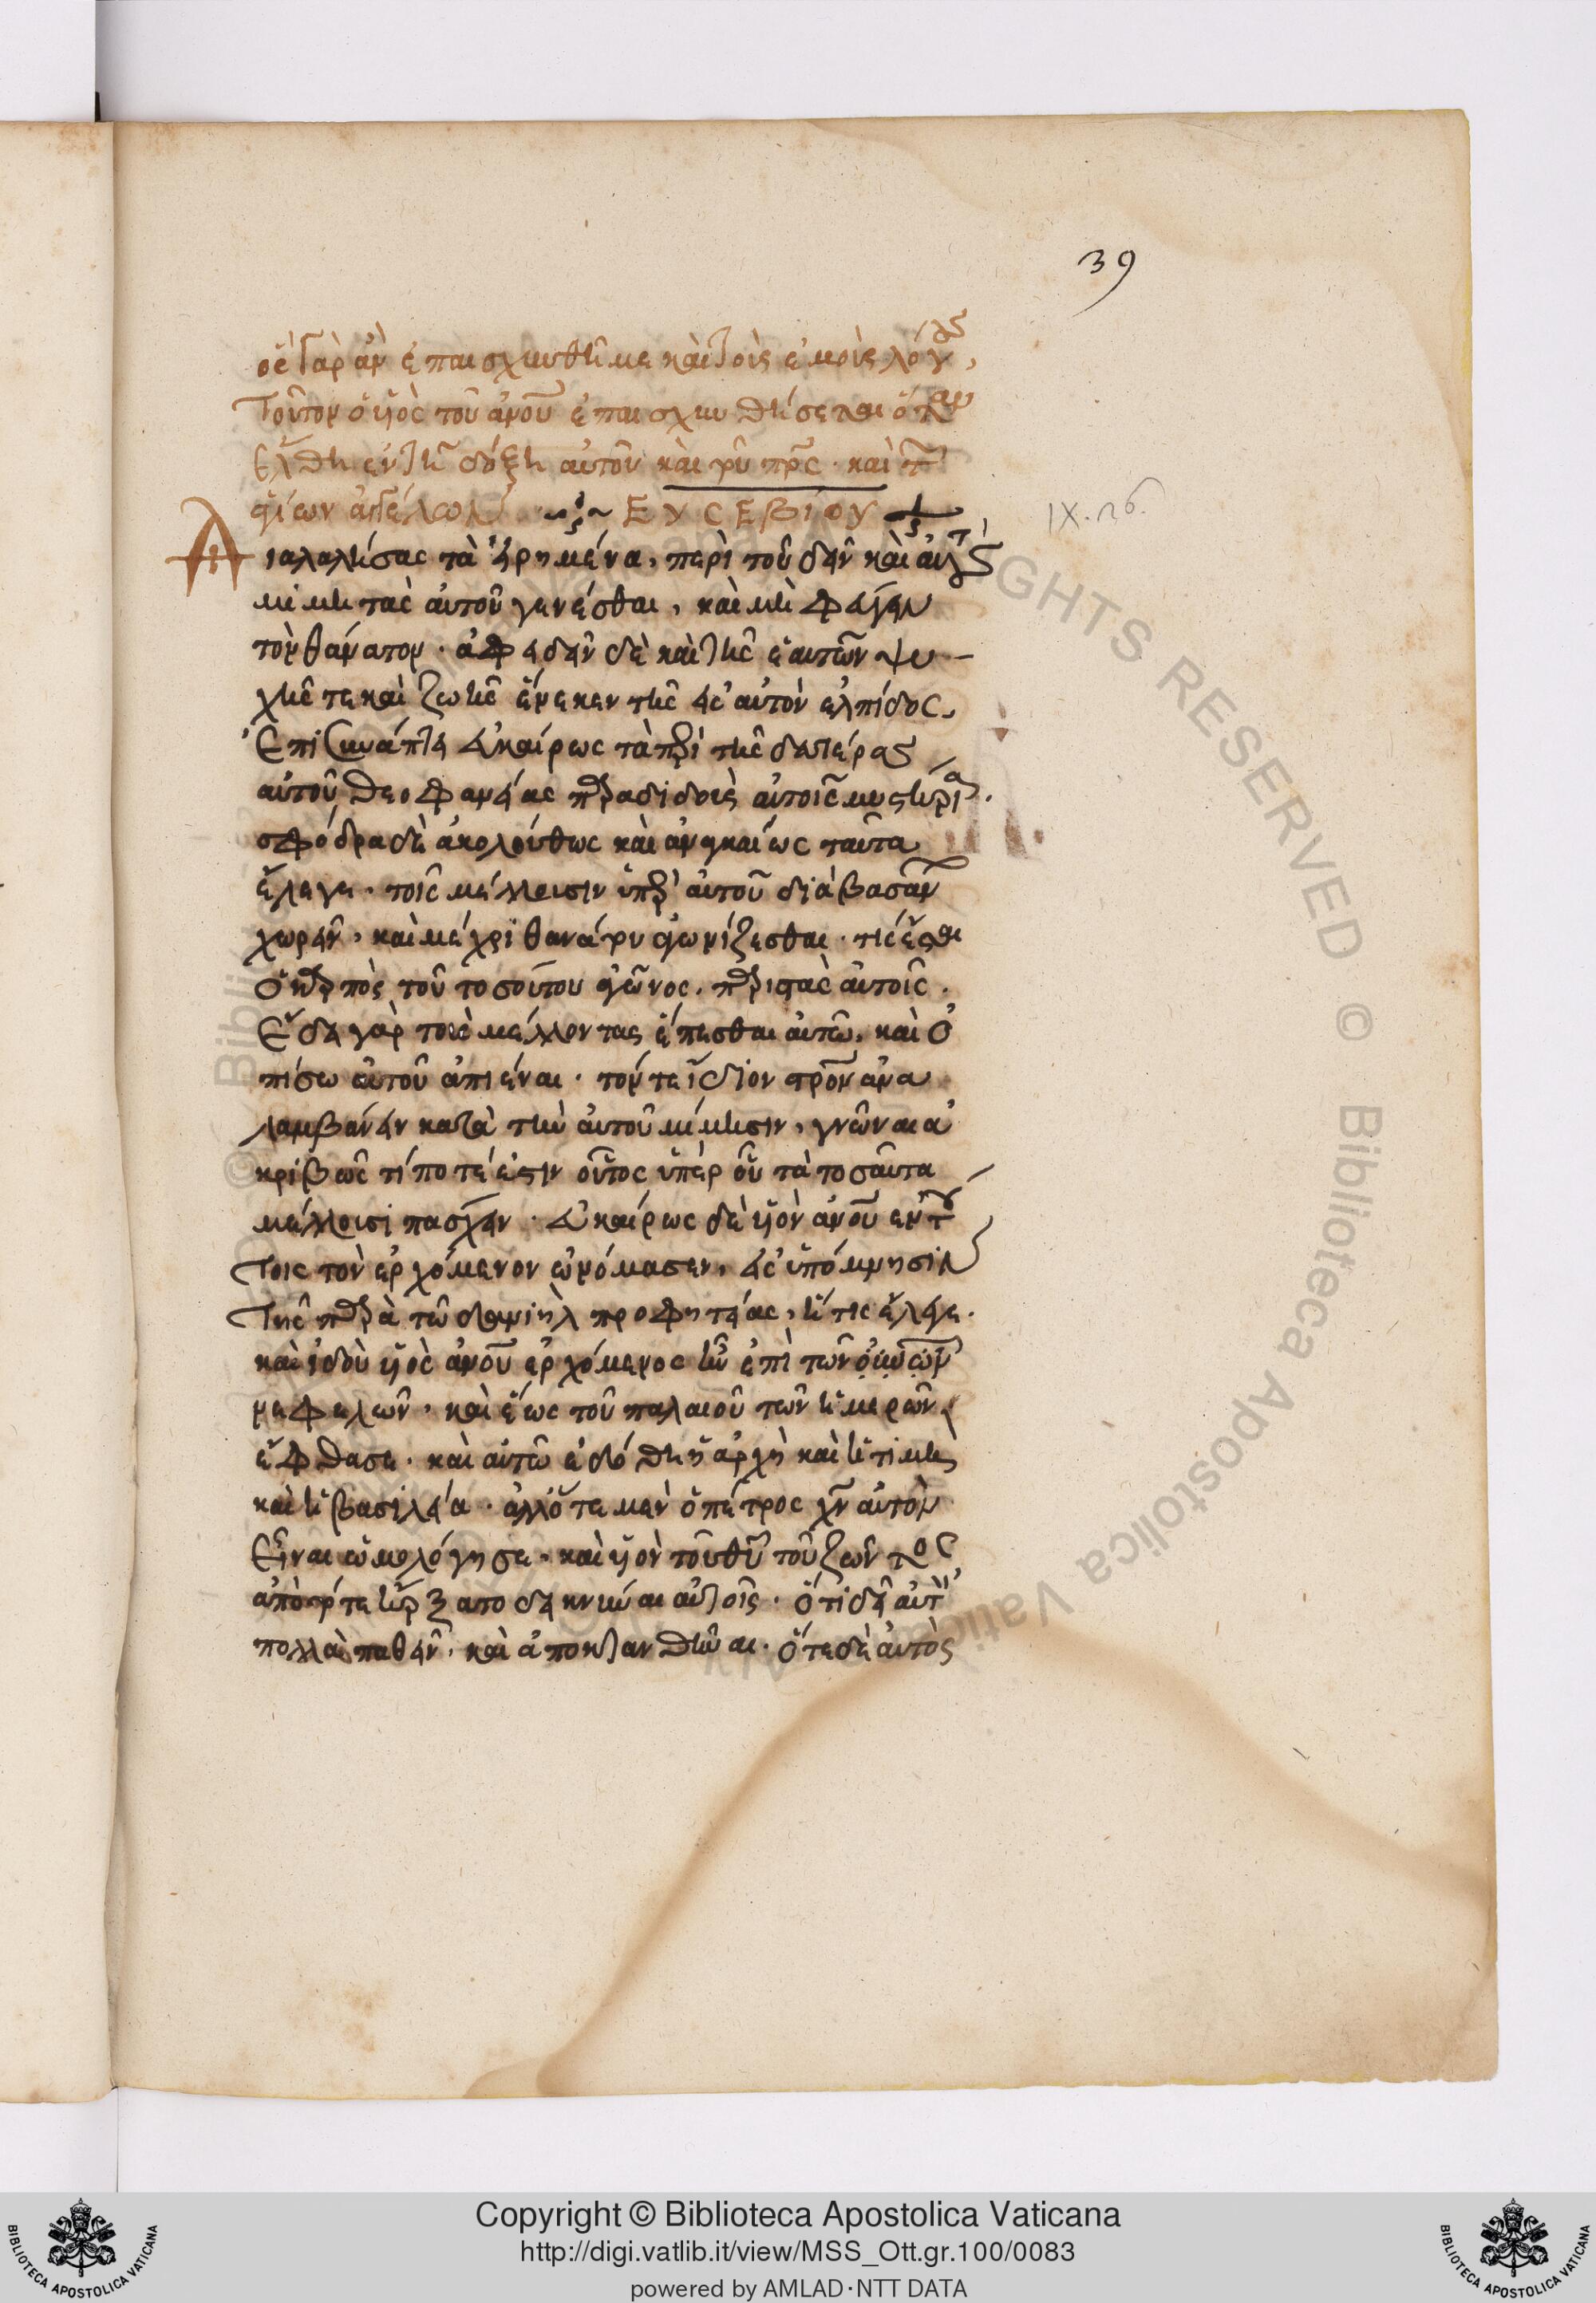 39
ὃς γὰρ ἂν ἐπαισχυνθῆ με καὶ τοὺς ἐμοὺς λόγους,
τοῦτον ὁ υἱὸς τοῦ ἀνου ἐπαισχυνθήσεται ὅταν
ἔλθη ἐν τῆ δόξη αὐτοῦ καὶ τοῦ πρς. καὶ τῶν
ἁγίων ἀγγέλων ΕΥΣΕΒΙΟΥ
IX.
Διαλαλήσας τὰ εἰρημένα, περὶ τοῦ δεῖν καὶ αὐτοὺς
μιμητὰς αὐτοῦ γενέσθαι, καὶ μὴ φεύγειν
τὸν θάνατον. ἀφειδεῖν δὲ καὶ τῆς ἑαυτῶν ψυ-
χῆς τε καὶ ζωῆς ἕνεκεν τῆς εἰς αὐτὸν ἐλπίδος,
Ἐπισυνάπτει εὐκαίρως τὰ περὶ τῆς δευτέρας
αὐτοῦ θεοφανείας παραδιδοὺς αὐτοῖς μυστήρια.
σφόδρα δὲ ἀκολούθως καὶ ἀναγκαίως ταῦτα
ἔλεγε. τοῖς μέλλουσιν ὑπὲρ αὐτοῦ διὰ βασάνων
χωρεῖν, καὶ μέχρι θανάτου ἀγωνίζεσθαι. τίς ἔσται
ὁ καρπὸς τοῦ τοσούτου ἀγῶνος, παριστὰς αὐτοῖς.
Ἔδει γὰρ τοὺς μέλλοντας ἕπεσθαι αὐτῶ, καὶ ὀ
πίσω αὐτοῦ ἀπιέναι. τόν τε ἴδιον στρον ἀνα
λαμβάνειν κατὰ τὴν αὐτοῦ μίμησιν, γνῶναι ἀ
κριβῶς τί ποτέ ἐστιν οὗτος ὑπὲρ οὗ τὰ τοσαῦτα
μέλλουσι πάσχειν. εὐκαίρως δὲ υἱὸν ἀνου ἐν τού
τοις τὸν ἐρχόμενον ὠνόμασεν, εἰς ὑπόμνησιν
τῆς παρὰ τῶ δανιὴλ προφητείας, ἥτις ἔλεγε.
καὶ ἰδοὺ υἱὸς ἀνου ἐρχόμενος ἦν ἐπὶ τῶν οὐνῶν
νεφελῶν, καὶ ἕως τοῦ παλαιοῦ τῶν ἡμερῶν
ἔφθασε. καὶ αὐτῶ ἐδόθη ἡ ἀρχὴ καὶ ἡ τιμὴ
καὶ ἡ βασιλεία. ἀλλ' ὅτε μὲν ὁ πέτρος χν αὐτὸν
εἶναι ὡμολόγησε, καὶ υἱὸν τοῦ θυ τοῦ ζῶντος
ἀπὸ τότε ἤρξατο δεικνύναι αὐτοῖς. ὅτι δεῖ αὐτὸν
πολλὰ παθεῖν, καὶ ἀποκτανθῆναι. ὅτε δὲ αὐτὸς
© Biblioteca Apostolica Vaticana ALL RIGHTS RESERVED © Biblioteca Apostolica Vaticana
Copyright © Biblioteca Apostolica Vaticana
http://digi.vatlib.it/view/MSS_Ott.gr.100/0083
powered by AMLAD·NTT DATA
BIBLIOTECA APOSTOLICA VATICANA
BIBLIOTECA APOSTOLICA VATICANA